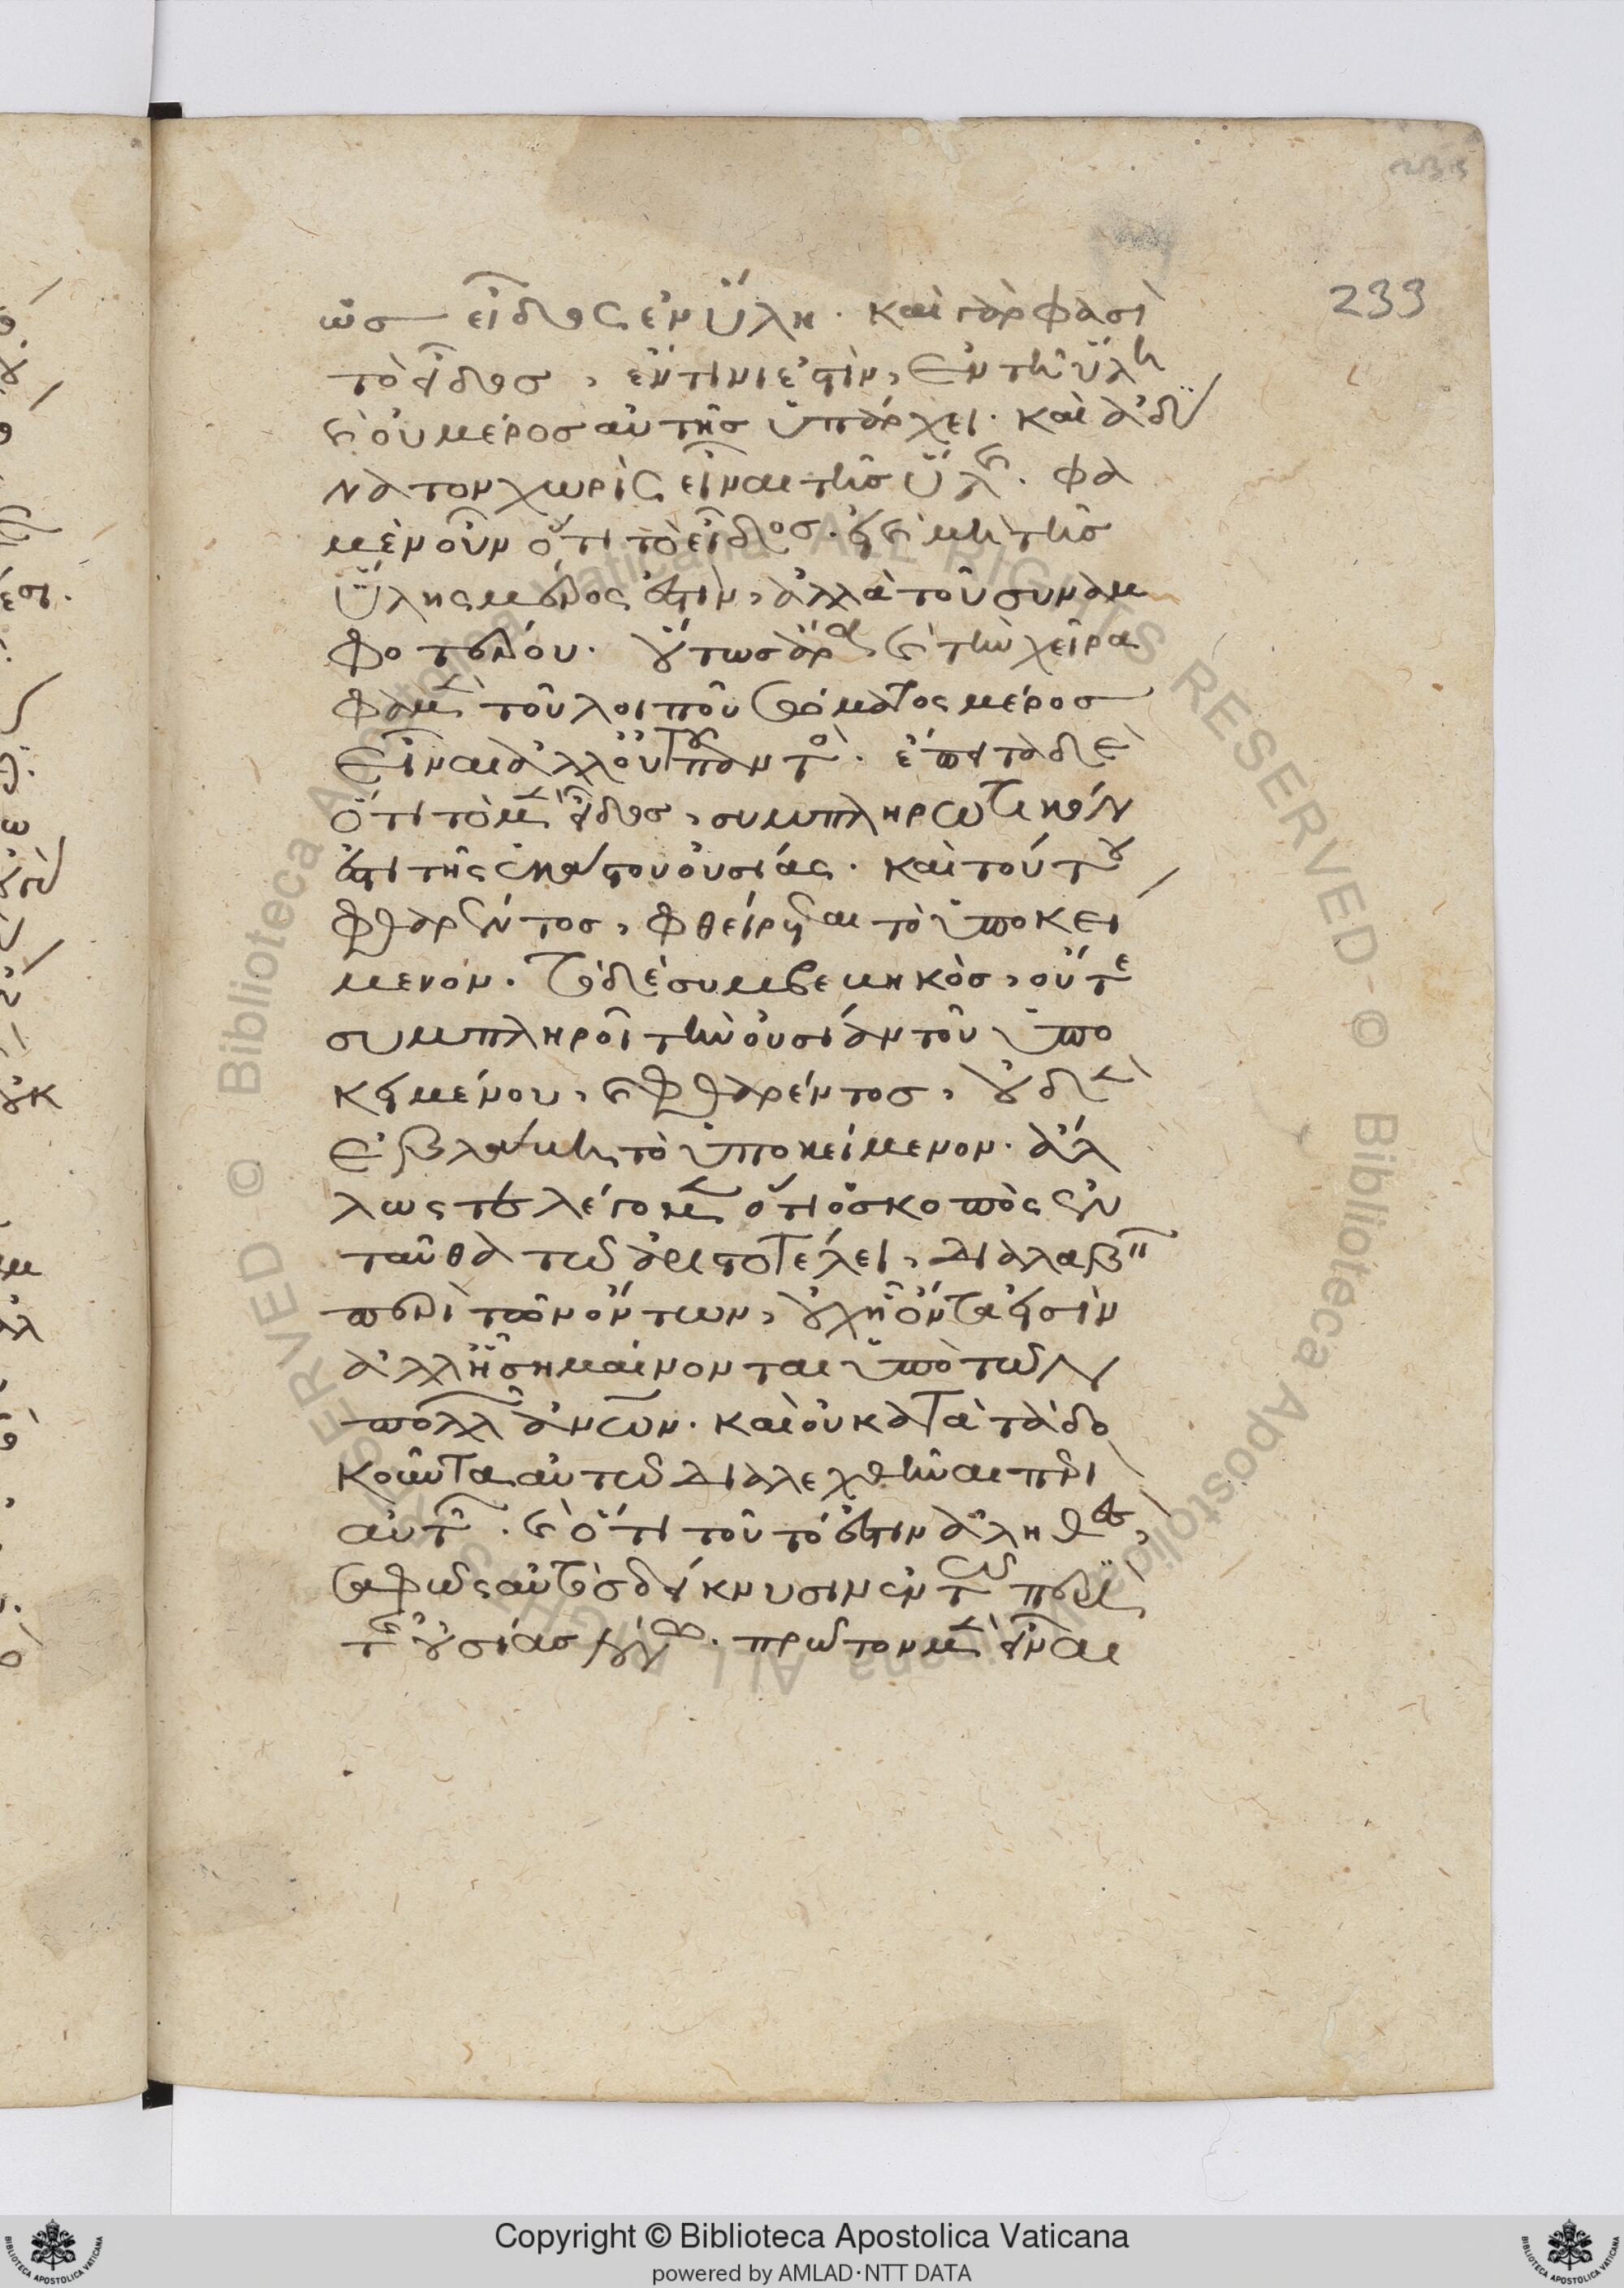 233
ὡς εἶδος ἐν ὕλη. καὶ γὰρ φασὶ
τὸ εἶδος, ἔν τινί ἐστιν, ἐν τῆ ὕλη
καὶ οὐ μέρος αὐτῆς ὑπάρχει. καὶ ἀδύ
νατον χωρὶς εἶναι τῆς ὕλης. φα
μὲν οὖν ὅτι τὸ εἶδος. εἰ καὶ μὴ τῆς
ὕλης μέρος ἐστιν, ἀλλὰ τοῦ συναμ
φοτέρου. οὕτως ἄρα καὶ τὴν χεῖρα
φαμὲν τοῦ λοιποῦ σώματος μέρος
εἶναι ἀλλ' οὐ τοῦ παντὸς. ἔπειτα δὲ
ὅτι τὸ μὲν εἶδος, συμπληρωτικόν
ἐστι τῆς ἑκάστου οὐσίας. καὶ τούτου
φθαρέντος, φθείρεται τὸ ὑποκεί
μενον. τὸ δὲ συμβεβηκὸς, οὔτε
συμπληροῖ τὴν οὐσίαν τοῦ ὑπο
κειμένου, καὶ φθαρέντος, οὐδὲν
ἐβλάβη τὸ ὑποκείμενον. ἄλ
λως τε λέγομεν ὅτι ὁ σκοπὸς ἐν
ταῦθα τῶ ἀριστοτέλει, διαλαβεῖν
περὶ τῶν ὄντων, οὐχ ἧ ὄντα εἰσὶν
ἀλλ' ἧ σημαίνονται ὑπὸ τῶν
πολλῶν ἀνῶν. καὶ οὐ κατὰ τὰ δο
κοῦντα αὐτῶ διαλεχθῆναι περὶ
αὐτῶν. καὶ ὅτι τοῦτό ἐστιν ἀληθὲς,
σαφῶς αὐτὸς δείκνυσιν ἐν τῶ περὶ
τῆς οὐσίας λόγω. πρῶτον μὲν εἶναι